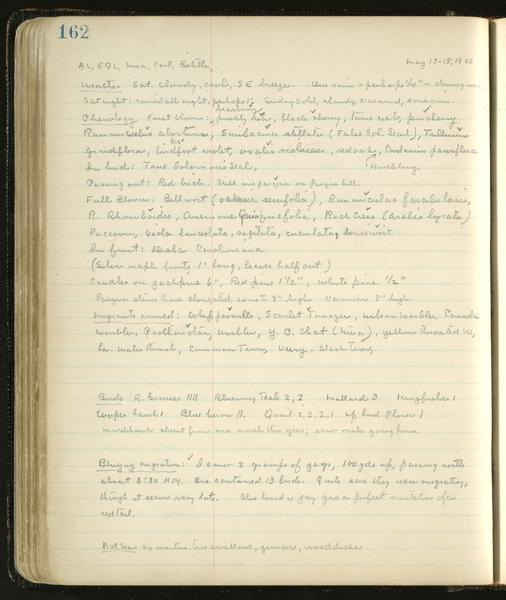 162
AL, EBL, Nina, Carl, Estella, May 17-18, 1940
Weather Sat. cloudy, cool, SE breeze. rain - perhaps 1/4" -
Sat night: rained all night, perhaps 1". Sunday cold, cloudy, NE wind, some rain.
Phenology First bloom: prickly black cherry, crab, pin cherry
Ranunculus abortivus, Smilacina stellata (False Sol. Seal), Trillium
grandiflora, birdfoot violet, oxalis violacea, red oak, Cardamine parviflora
In bud: True Solomons Seal, Huckleberry
Passing out: Red birch. Still one pasque on Pasque hill.
Full Bloom: Bellwort (oakesia sessifolia), Ranunculus fascicularis,
R. Rhomboides, Anemone quinquefolia, Rock Cress (Arabis lyrata)
Puccoon, Viola lanceolata, sagitata, cuculata,
In fruit: Draba Caroliniana
(Silver maple fruits 1" long, leaves half out)
Candles on jackpine 6", Red pine 1 1/2", White pine 1/2"
Pasque stems have elongated, some to 8" high. 8" high
Migrants arrived: Whippoorwills, Scarlet Tanager, warbler, Canada
warbler, Prothonotary warbler, Y. B. Chat (Nina), yellow throated W,
La. Water thrush, Common Tern, Veery, Black tern,
Birds R. Grouse IIII Bluewing Teal 2, 2 Mallards 3 Kingfisher 1
Cooper hawk 1 Blue heron II. Quail 2, 2, 2, 1 Upland Plover 1
Marsh hawk absent from our marsh this year; saw male going home.
Bluejay migration: I saw 2 groups of jays, 100 yds up, passing north
about 5:30 AM. One contained 13 birds. Quite sure they were migrating,
though it seems very late. Also heard a jay give a perfect imitation of a
redtail.
Not See no martins, tree swallows, woodducks